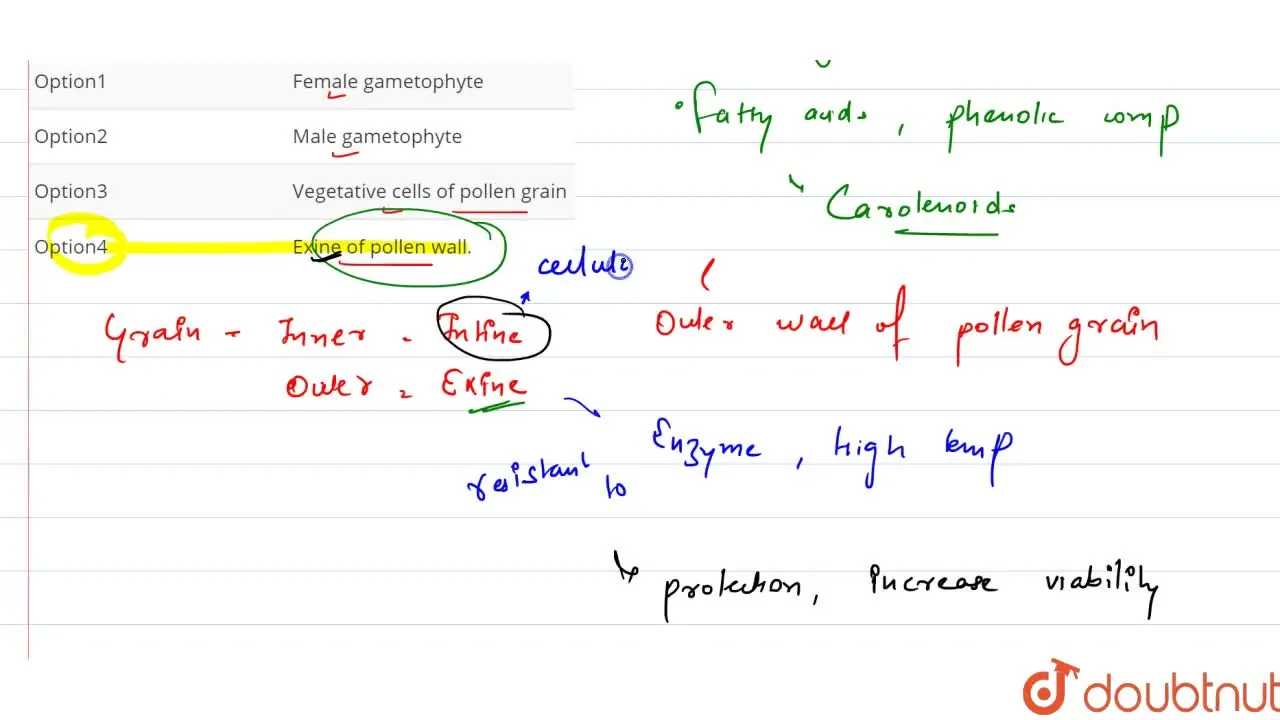 Option1 Female gametophyte
Option2 Male gametophyte
Option3 Vegetative cells of pollen grain
Option4 Exine of pollen wall.
Fatty acids, phenolic comp
Carotenoids
cellulo
Grain - Inner - Intine
Outer = Exine
Outer wall of pollen grain
resistant to Enzyme, high temp
protection, increase viability
doubtnut